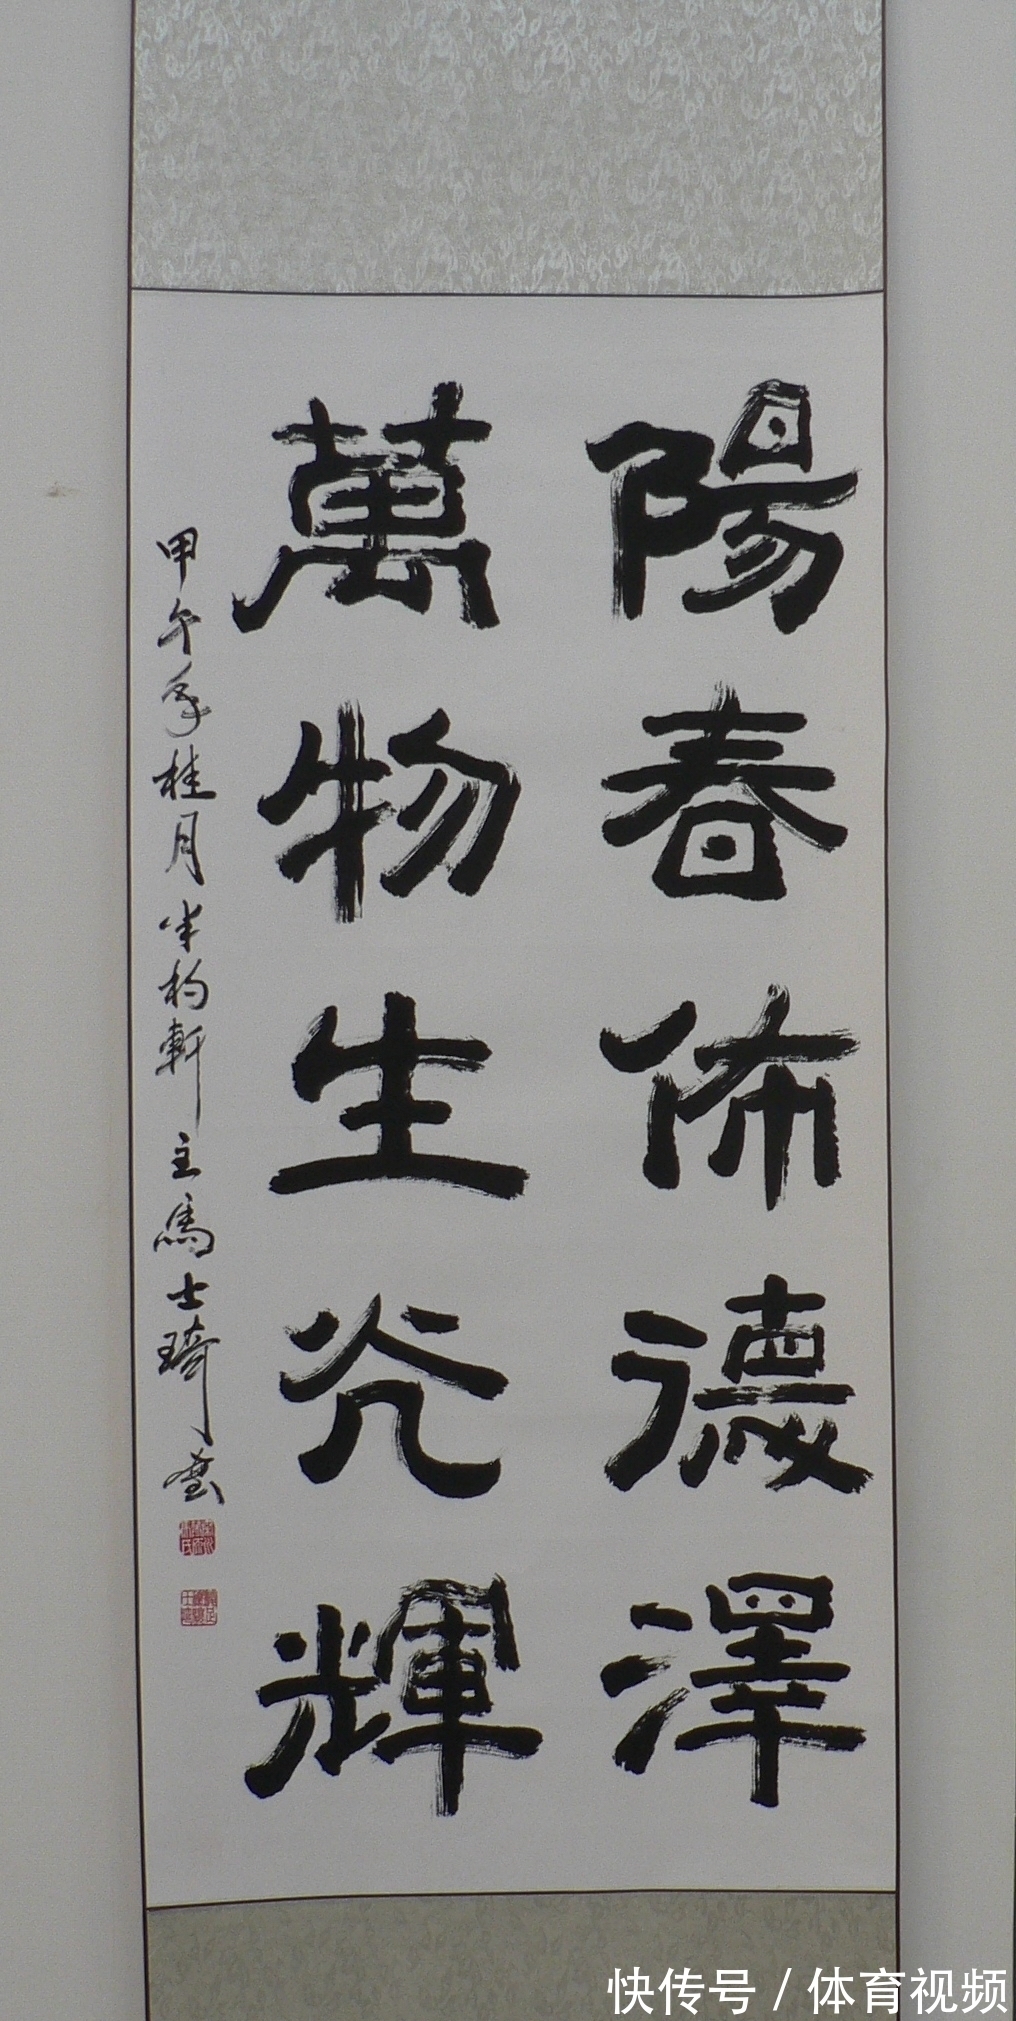 陽春佈德澤
萬物生光輝
甲午年桂月半杓軒主馬士琦書
快传号/体育视频